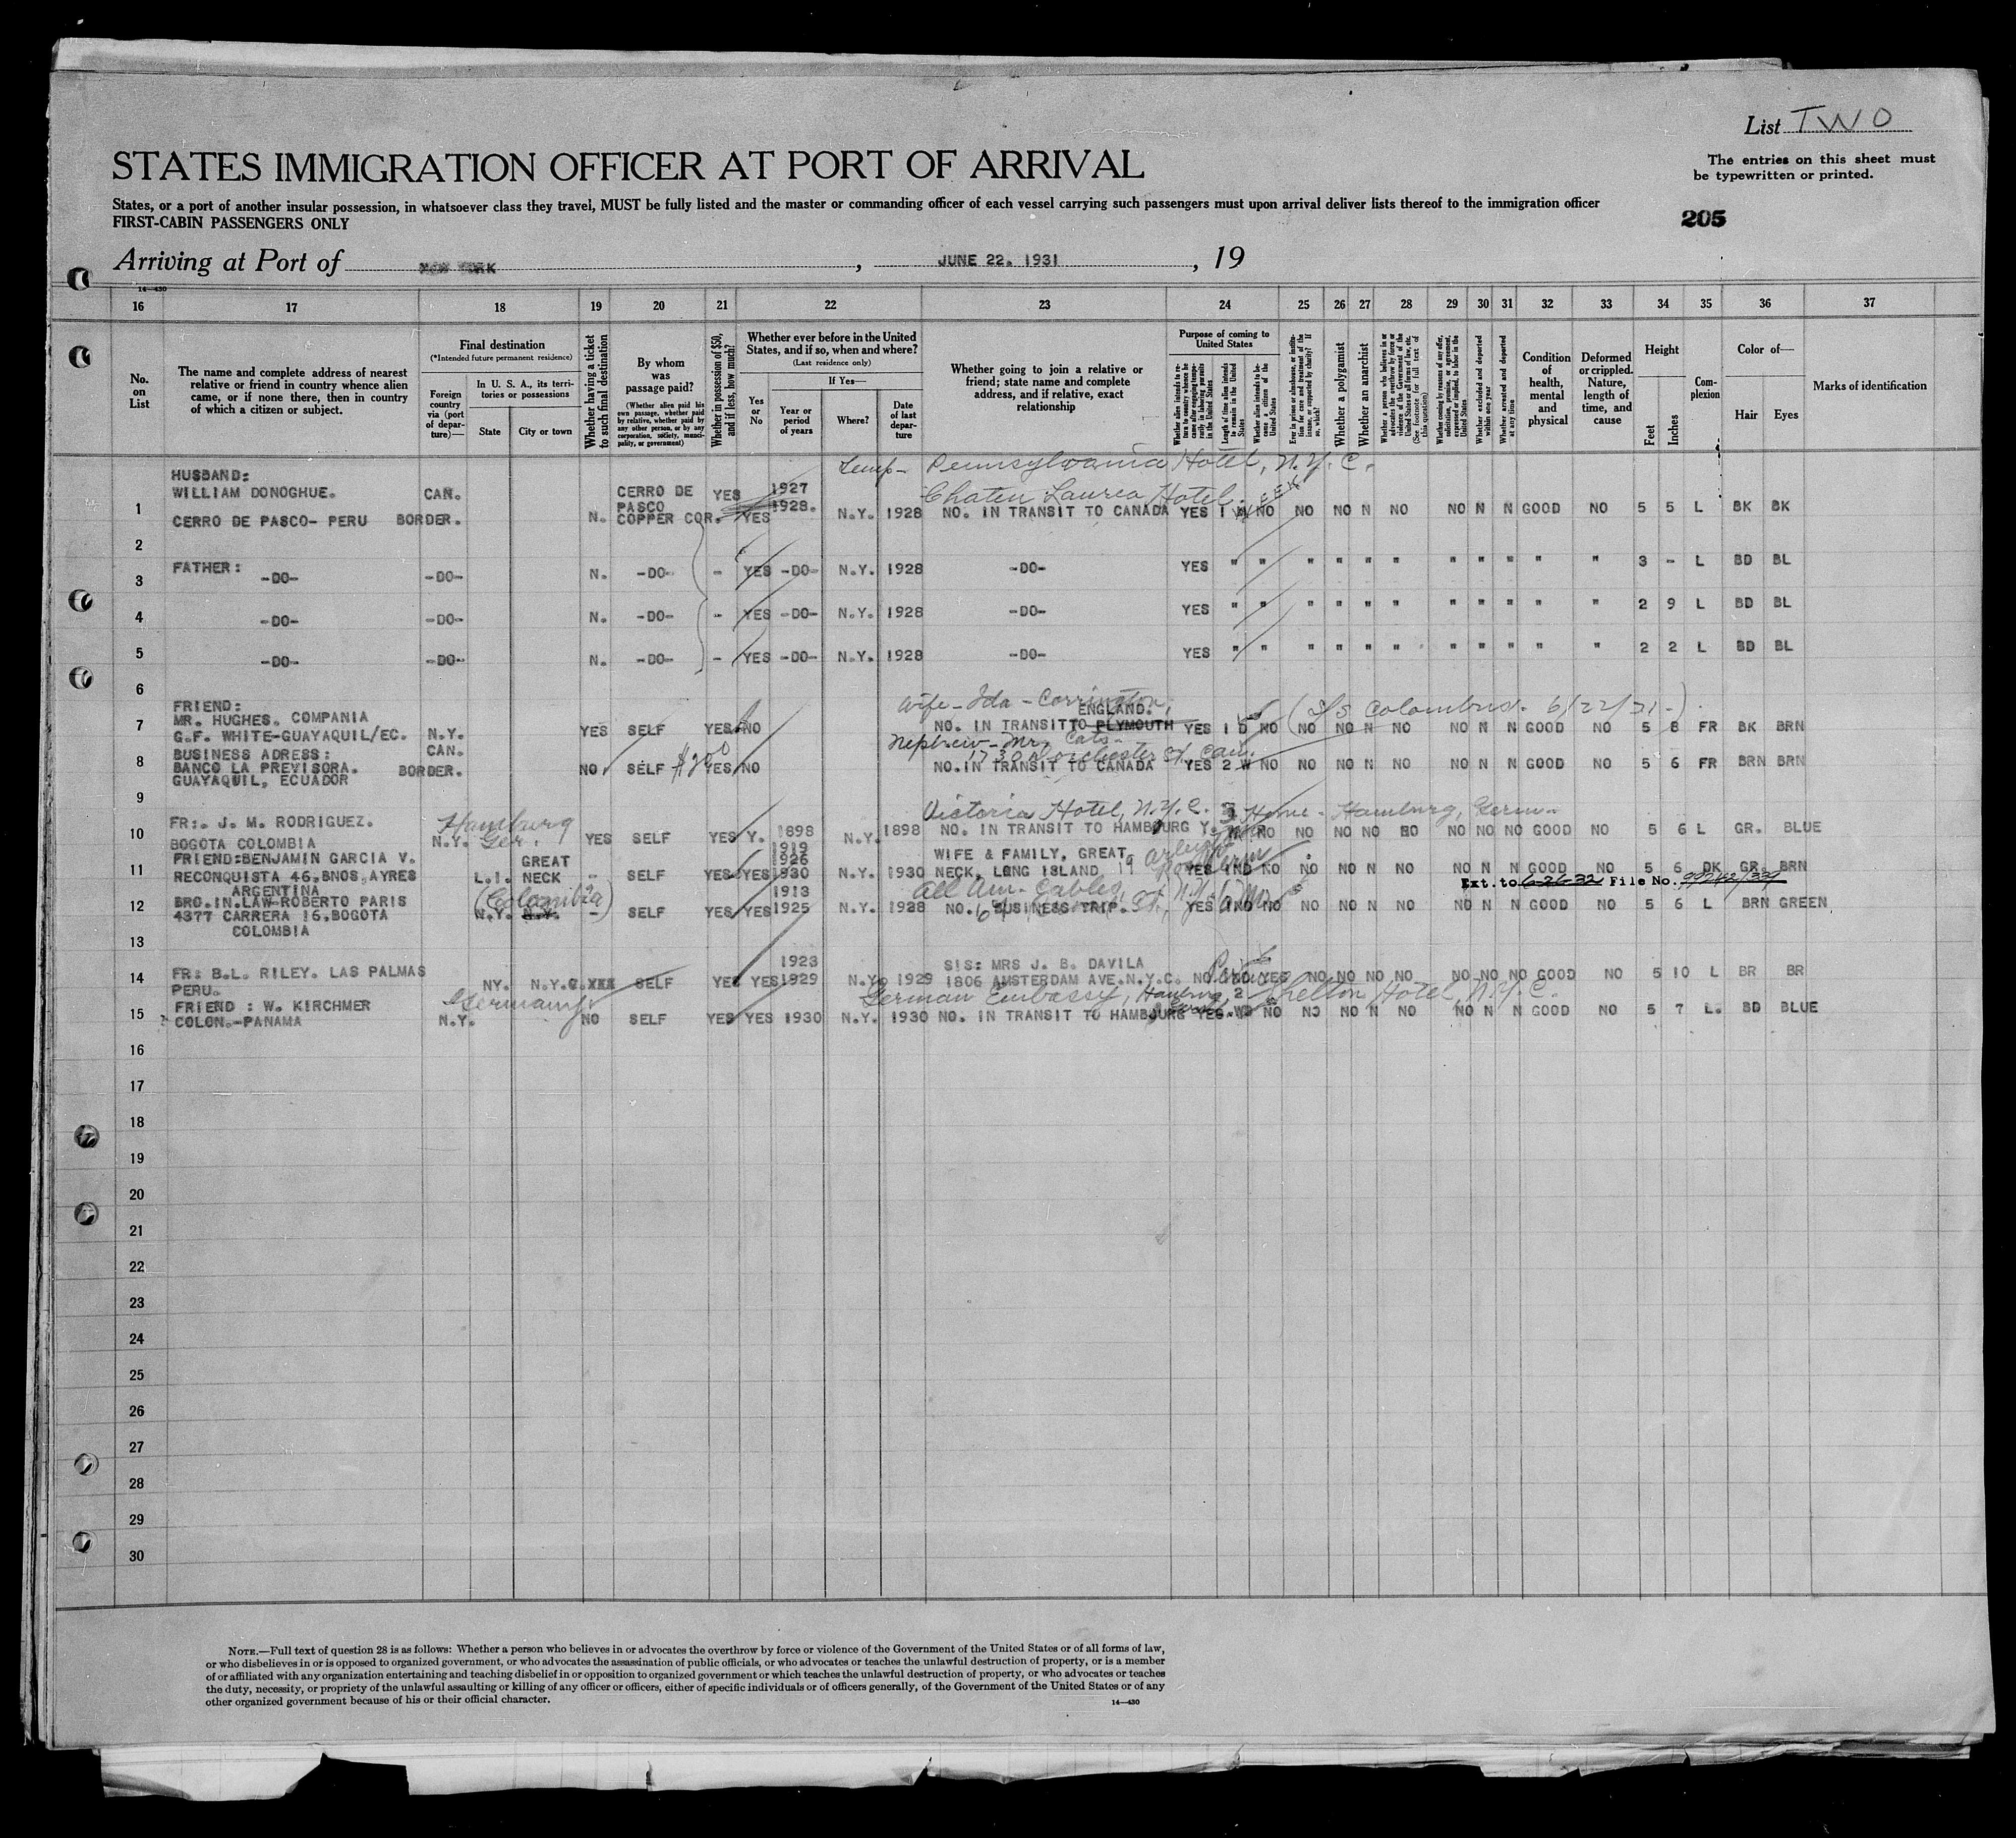 List TWO
The entries on this sheet must
be typewritten or printed.
STATES IMMIGRATION OFFICER AT PORT OF ARRIVAL
States, or a port of another insular possession, in whatsoever class they travel, MUST be fully listed and the master or commanding officer of each vessel carrying such passengers must upon arrival deliver lists thereof to the immigration officer
FIRST-CABIN PASSENGERS ONLY
205
Arriving at Port of NEW YORK, JUNE 22. 1931, 19
14—430
16 17 18 19 20 21 22 23 24 25 26 27 28 29 30 31 32 33 34 35 36 37
No. on List
The name and complete address of nearest relative or friend in country whence alien came, or if none there, then in country of which a citizen or subject.
Final destination
(*Intended future permanent residence)
Foreign country via (port of departure)—
In U. S. A., its territories or possessions
State
City or town
Whether having a ticket to such final destination
By whom was passage paid?
(Whether alien paid his own passage, whether paid by relative, whether paid by any other person, or by any corporation, society, municipality, or government)
Whether in possession of $50, and if less, how much?
Whether ever before in the United States, and if so, when and where?
(Last residence only)
If Yes—
Yes or No
Year or period of years
Where?
Date of last departure
Whether going to join a relative or friend; state name and complete address, and if relative, exact relationship
Purpose of coming to United States
Whether alien intends to return to country whence he came after engaging temporarily in laboring pursuits in the United States
Length of time alien intends to remain in the United States
Whether alien intends to become a citizen of the United States
Ever in prison or almshouse, or institution for care and treatment of the insane, or supported by charity? If so, which?
Whether a polygamist
Whether an anarchist
Whether a person who believes in or advocates the overthrow by force or violence of the Government of the United States or all forms of law, etc. (See footnote for full text of this question)
Whether coming by reasons of any offer, solicitation, promise, or agreement, expressed or implied, to labor in the United States
Whether excluded and deported within one year
Whether arrested and deported at any time
Condition of health, mental and physical
Deformed or crippled. Nature, length of time, and cause
Height
Feet
Inches
Complexion
Color of—
Hair
Eyes
Marks of identification
Temp- Pennsylvania Hotel, N.Y.C.
HUSBAND:
WILLIAM DONOGHUE. CAN. CERRO DE YES 1927
1 PASCO 1928. Hotel.
CERRO DE PASCO- PERU BORDER. N. COPPER COR. YES N.Y. 1928 NO. IN TRANSIT TO CANADA YES 1 W NO NO NO N NO NO N N GOOD NO 5 5 L BK BK
2
FATHER:
3 -DO- -DO- N. -DO- - YES -DO- N.Y. 1928 -DO- YES " " " " " " " " " " " 3 - L BD BL
4 -DO- -DO- N. -DO- - YES -DO- N.Y. 1928 -DO- YES " " " " " " " " " " " 2 9 L BD BL
5 -DO- -DO- N. -DO- - YES -DO- N.Y. 1928 -DO- YES " " " " " " " " " " " 2 2 L BD BL
6
FRIEND: wife - Ida - Corrington, ENGLAND. (S/S Columbus. 6/22/31-)
7 MR. HUGHES. COMPANIA
G.F. WHITE-GUAYAQUIL/EC. N.Y. YES SELF YES NO NO. IN TRANSIT TO PLYMOUTH YES 1 D NO NO NO N NO NO N N GOOD NO 5 8 FR BK BRN
BUSINESS ADRESS: CAN. Nephew - Mr.
8 BANCO LA PREVISORA. BORDER. NO. SELF $200 YES NO NO. IN TRANSIT TO CANADA YES 2 W NO NO NO N NO NO N N GOOD NO 5 6 FR BRN BRN
GUAYAQUIL, ECUADOR
9
Victoria Hotel, N.Y.C. Home - Hamburg, Germ.
FR:. J. M. RODRIGUEZ. Hamburg Ger.
10 BOGOTA COLOMBIA N.Y. YES SELF YES Y. 1898 N.Y. 1898 NO. IN TRANSIT TO HAMBURG Y. NO NO NO NO NO NO NO NO GOOD NO 5 6 L GR. BLUE
1919
FRIEND:BENJAMIN GARCIA V. GREAT 1926 WIFE & FAMILY, GREAT
11 RECONQUISTA 46.BNOS.AYRES L.I. NECK - SELF YES YES 1930 N.Y. 1930 NECK, LONG ISLAND YES IND NO NO NO N NO NO N N GOOD NO 5 6 DK GR. BRN
ARGENTINA (Colombia) 1913 All Am. Cables, Ext. to 6-26-32 File No. 99242/339
BRO.IN.LAW-ROBERTO PARIS
12 4377 CARRERA 16.BOGOTA N.Y. N.Y. - SELF YES YES 1925 N.Y. 1928 NO. BUSINESS TRIP. YES IND NO NO NO N NO NO N N GOOD NO 5 6 L BRN GREEN
COLOMBIA
13
1923 SIS: MRS J. B. DAVILA
14 FR: B.L. RILEY. LAS PALMAS NY. N.Y.C. XXX SELF YES YES 1929 N.Y. 1929 1806 AMSTERDAM AVE.N.Y.C. NO YES NO NO NO NO NO NO NO GOOD NO 5 10 L BR BR
PERU. Germany German Embassy, Shelton Hotel, N.Y.C.
FRIEND : W. KIRCHMER
15 COLON.-PANAMA N.Y. NO SELF YES YES 1930 N.Y. 1930 NO. IN TRANSIT TO HAMBOURG YES W NO NO NO N NO NO N N GOOD NO 5 7 L. BD BLUE
16
17
18
19
20
21
22
23
24
25
26
27
28
29
30
NOTE.—Full text of question 28 is as follows: Whether a person who believes in or advocates the overthrow by force or violence of the Government of the United States or of all forms of law,
or who disbelieves in or is opposed to organized government, or who advocates the assassination of public officials, or who advocates or teaches the unlawful destruction of property, or is a member
of or affiliated with any organization entertaining and teaching disbelief in or opposition to organized government or which teaches the unlawful destruction of property, or who advocates or teaches
the duty, necessity, or propriety of the unlawful assaulting or killing of any officer or officers, either of specific individuals or of officers generally, of the Government of the United States or of any
other organized government because of his or their official character.
14—430